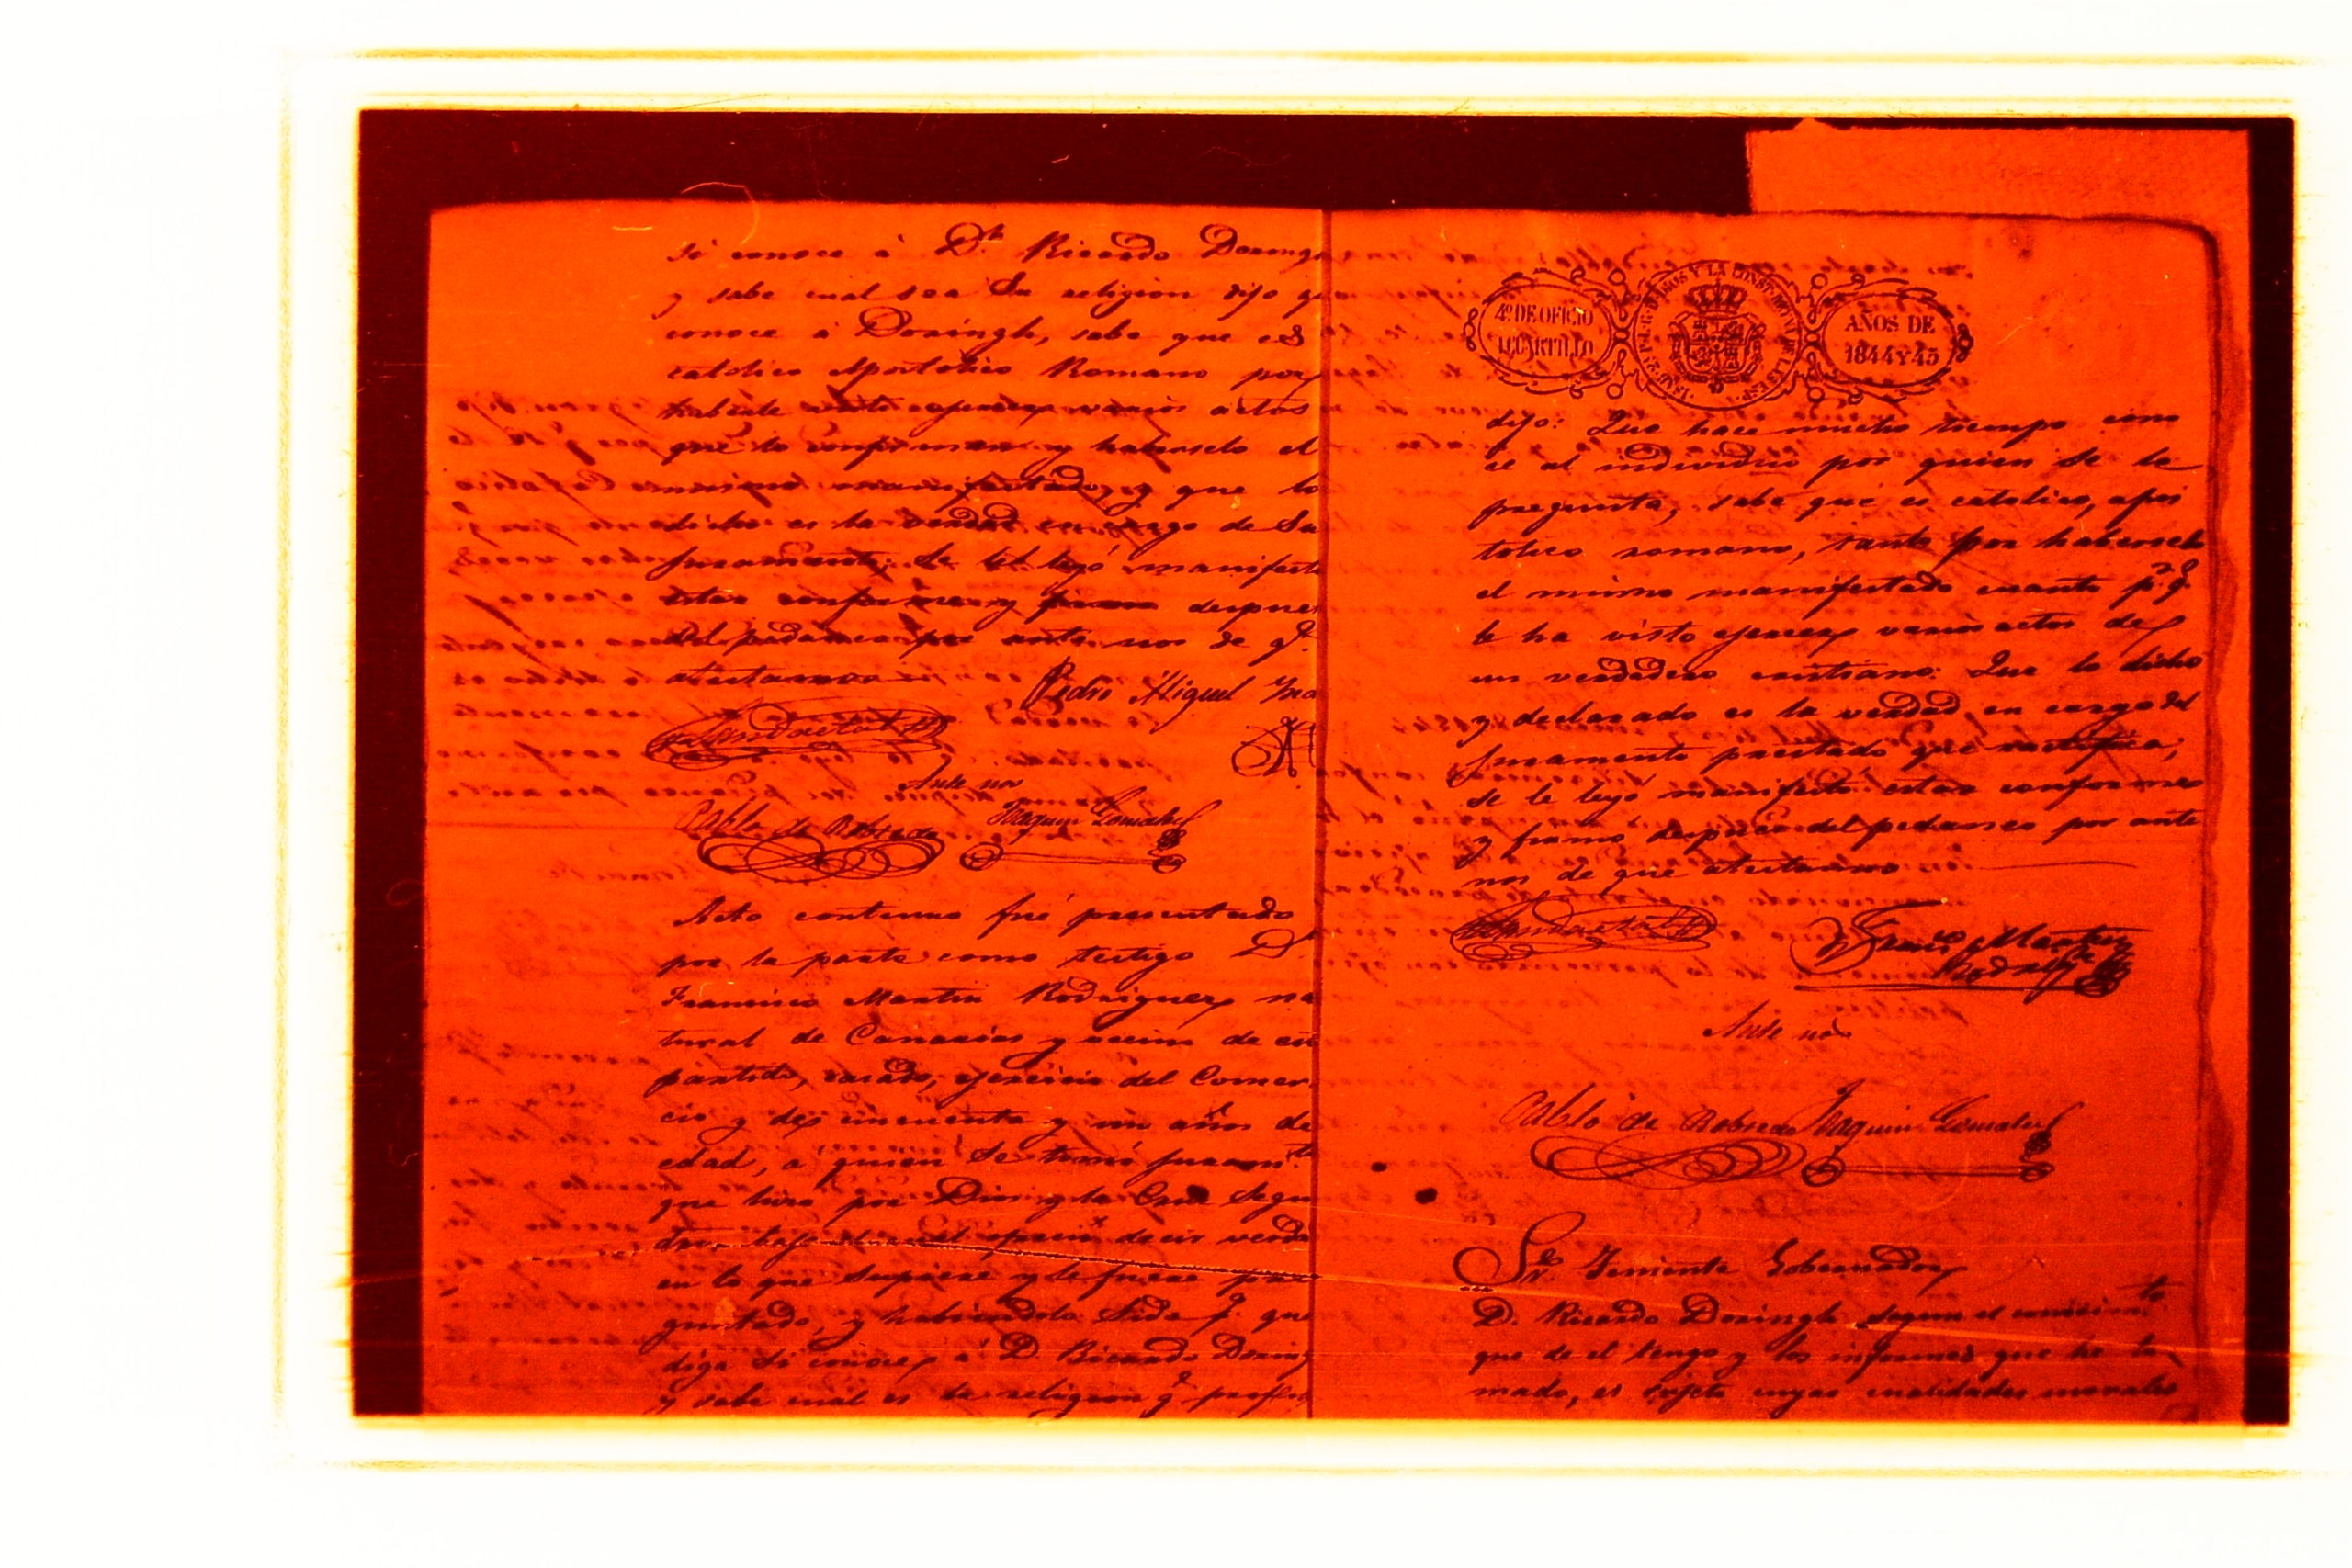 si conoce à Dn. Ricardo Doringh
y sabe cual sea su religion dijo q
conoce à Doringh, sabe que es
catolico Apostolico Romano por
haberle visto ejercer varios actos
que lo confirman y haberselo el
mismo manifestado, y que lo
dicho es la verdad en cargo de su
juramento; se le leyó manifestó
estar conforme y firmó despues
del pedaneo por ante nos de q.
atestamos
Pedro Miguel
Ante nos
Pablo de Robredo Joaquin Gonzalez
Acto continuo fué presentado
por la parte como testigo Dn.
Francisco Martin Rodriguez na
tural de Canarias y vecino de este
partido, casado, ejercicio del Comer
cio y de cincuenta y un años de
edad, a quien se tomó juramto.
que hizo por Dios y la Cruz segun
dro. bajo el cual ofreció decir verdad
en lo que supiere y le fuere pre
guntado, y habiendolo sido pa. que
diga si conoce à D. Ricardo Doringh
y sabe cual es la religion q. profesa
4º DE OFICIO
UCUARTILLO
AÑOS DE
1844 Y 45
dijo: Que hace mucho tiempo cono
ce al individuo por quien se le
pregunta, sabe que es catolico, apos
tolico romano, tanto por haberselo
el mismo manifestado cuanto pr. q.
le ha visto ejercer varios actos de
un verdadero cristiano: Que lo dicho
y declarado es la verdad en cargo del
juramento prestado que ratifica;
se le leyó manifestó estar conforme
y firmó despues del pedaneo por ante
nos de que atestamos
Franco. Martin
Rodriguez
Ante nos
Pablo de Robredo Joaquin Gonzalez
Sr. Teniente Gobernador
D. Ricardo Doringh segun el conocimto.
que de el tengo y los informes que he to
mado, es sujeto cuyas cualidades morales